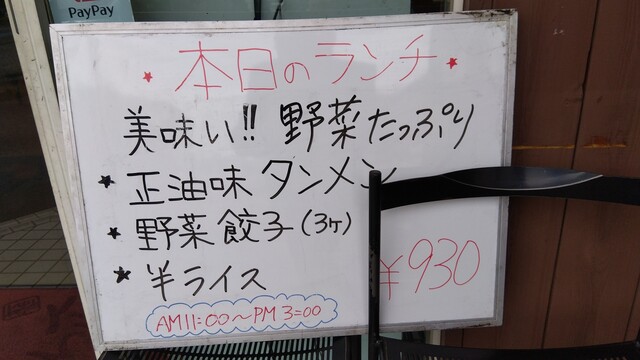 PayPay
★ 本日のランチ ★
美味い!! 野菜たっぷり
★ 正油味 タンメン
★ 野菜餃子(3ヶ)
★ 半ライス
¥930
AM11:00〜PM3:00